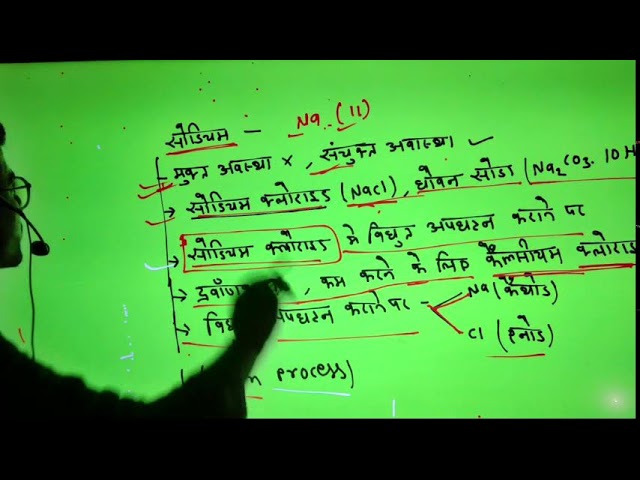 सोडियम — Na (11)
- मुक्त अवस्था ×, संयुक्त अवास्था ✓
→ सोडियम क्लोराइड (NaCl), धोवन सोडा (Na2CO3. 10H
→ सोडियम क्लोराइड मे विद्युत अपघटन कराने पर
→ कम करने के लिए कैल्सीयम क्लोरा
→ अपघटन कराने पर - Na (कैथोड)
Cl (एनोड)
process)